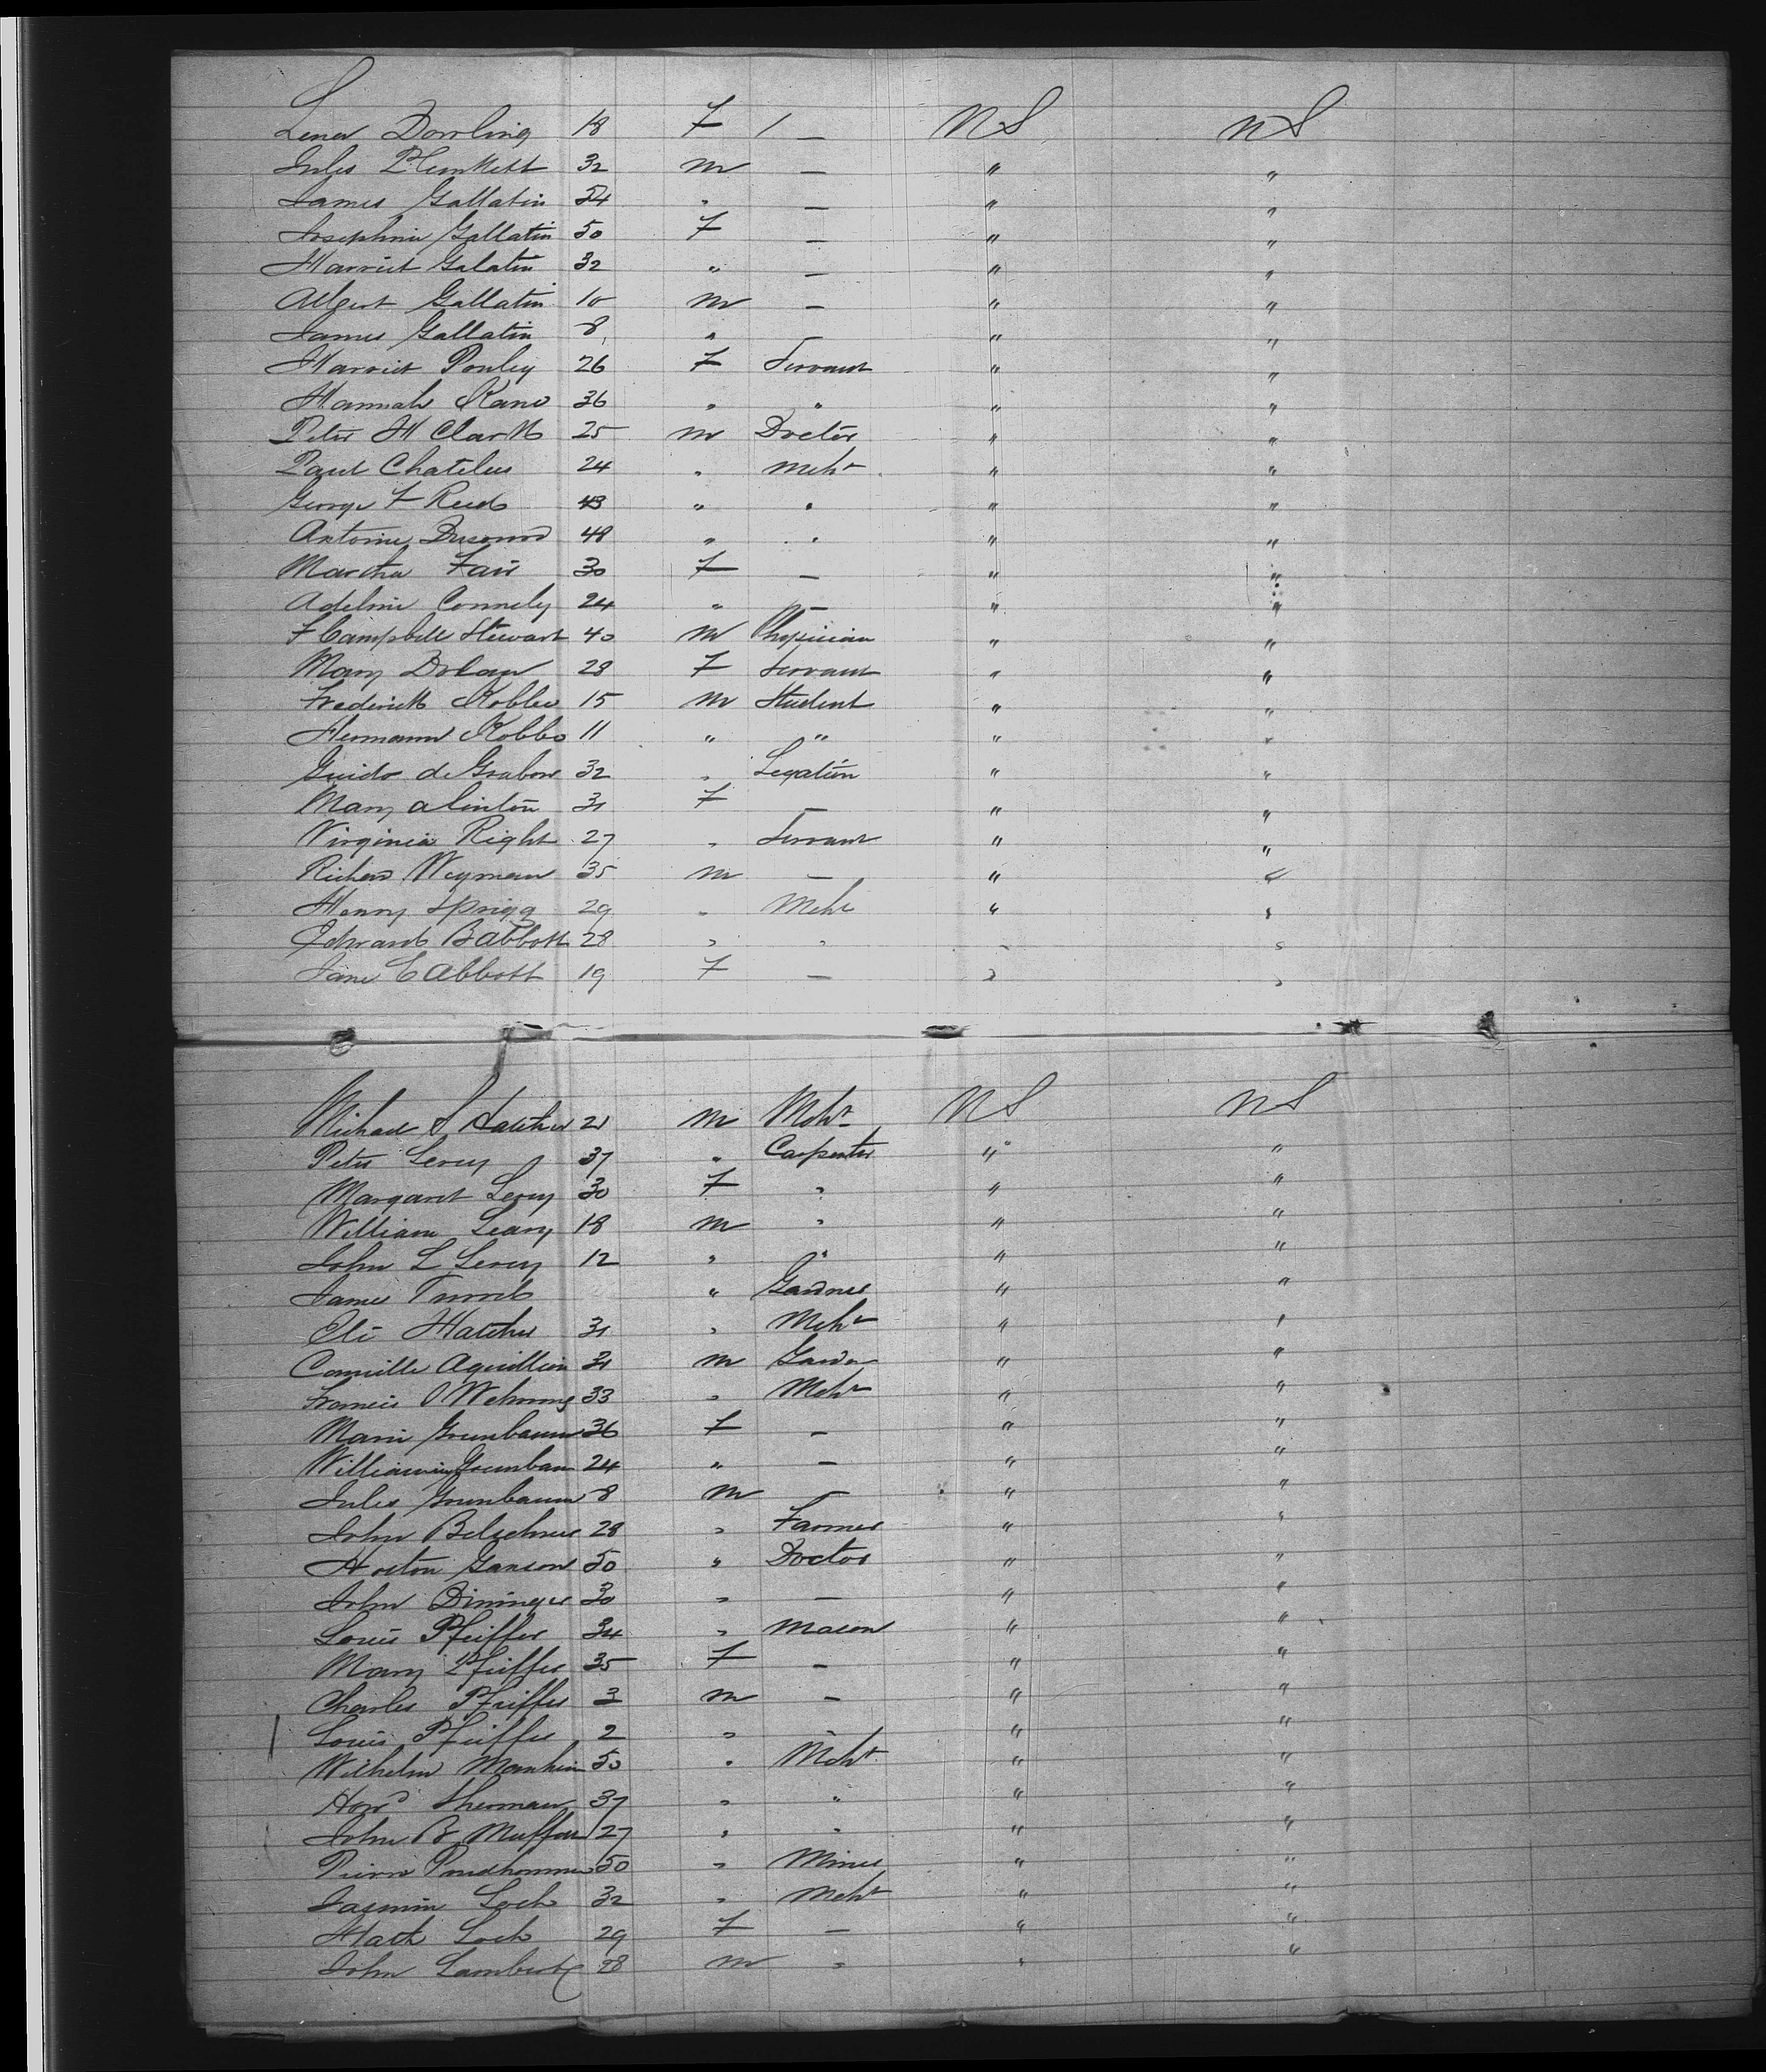 Lena Dowling 18 F / — US US
Jules Plunkett 32 M — " "
James Gallatin 54 " — " "
Josephine Gallatin 50 F — " "
Harriet Galatin 32 " — " "
Albert Gallatin 10 M — " "
James Gallatin 8 " — " "
Harriet Ponley 26 F Servant " "
Hannah Kane 36 " " " "
Peter H Clark 25 M Doctor " "
Paul Chatelus 24 " Mcht " "
George F Reed 43 " " " "
Antoine 48 " " " "
Martha Fair 30 F — " "
Adeline Connely 24 " — " "
F Campbell Stewart 40 M Physician " "
Mary Dolan 28 F Servant " "
Frederick Kobbe 15 M Student " "
Hermann Kobbe 11 " " " "
Guido de Grabow 32 " Legation " "
Mary a linton 31 F — " "
Virginia Right 27 " Servant " "
Richard Weyman 35 M — " "
Henry Sprigg 29 " Mcht " "
Edward B Abbott 28 " " " "
Jane E Abbott 19 F — " "
Michael S Hatcher 21 M Mcht US US
Peter Lercy 37 " Carpenter " "
Margaret Lercy 30 F " " "
William Leary 18 M " " "
John L Lercy 12 " " " "
James " Gardner " "
Eli Hatcher 31 " Mcht " "
Camille Aquillion 31 M " "
Francis O Wehmng 33 " Mcht " "
Marie Grunbaum 36 F — " "
Grunbaum 24 " — " "
Jules Grunbaum 8 M — " "
John Belschner 28 " Farmer " "
Horton Ganson 50 " Doctor " "
John Dininger 30 " — " "
Louis Pfeiffer 34 " Mason " "
Mary Pfeiffer 35 F — " "
Charles Pfeiffer 3 M — " "
Louis Pfeiffer 2 " — " "
Wilhelm Manhein 50 " Mcht " "
Howd Sherman 37 " " " "
John B 27 " " " "
Pierre Prudhomme 50 " Miner " "
Jasmin Loch 32 " Mcht " "
Loch 29 F — " "
John Lambert 28 M " " "